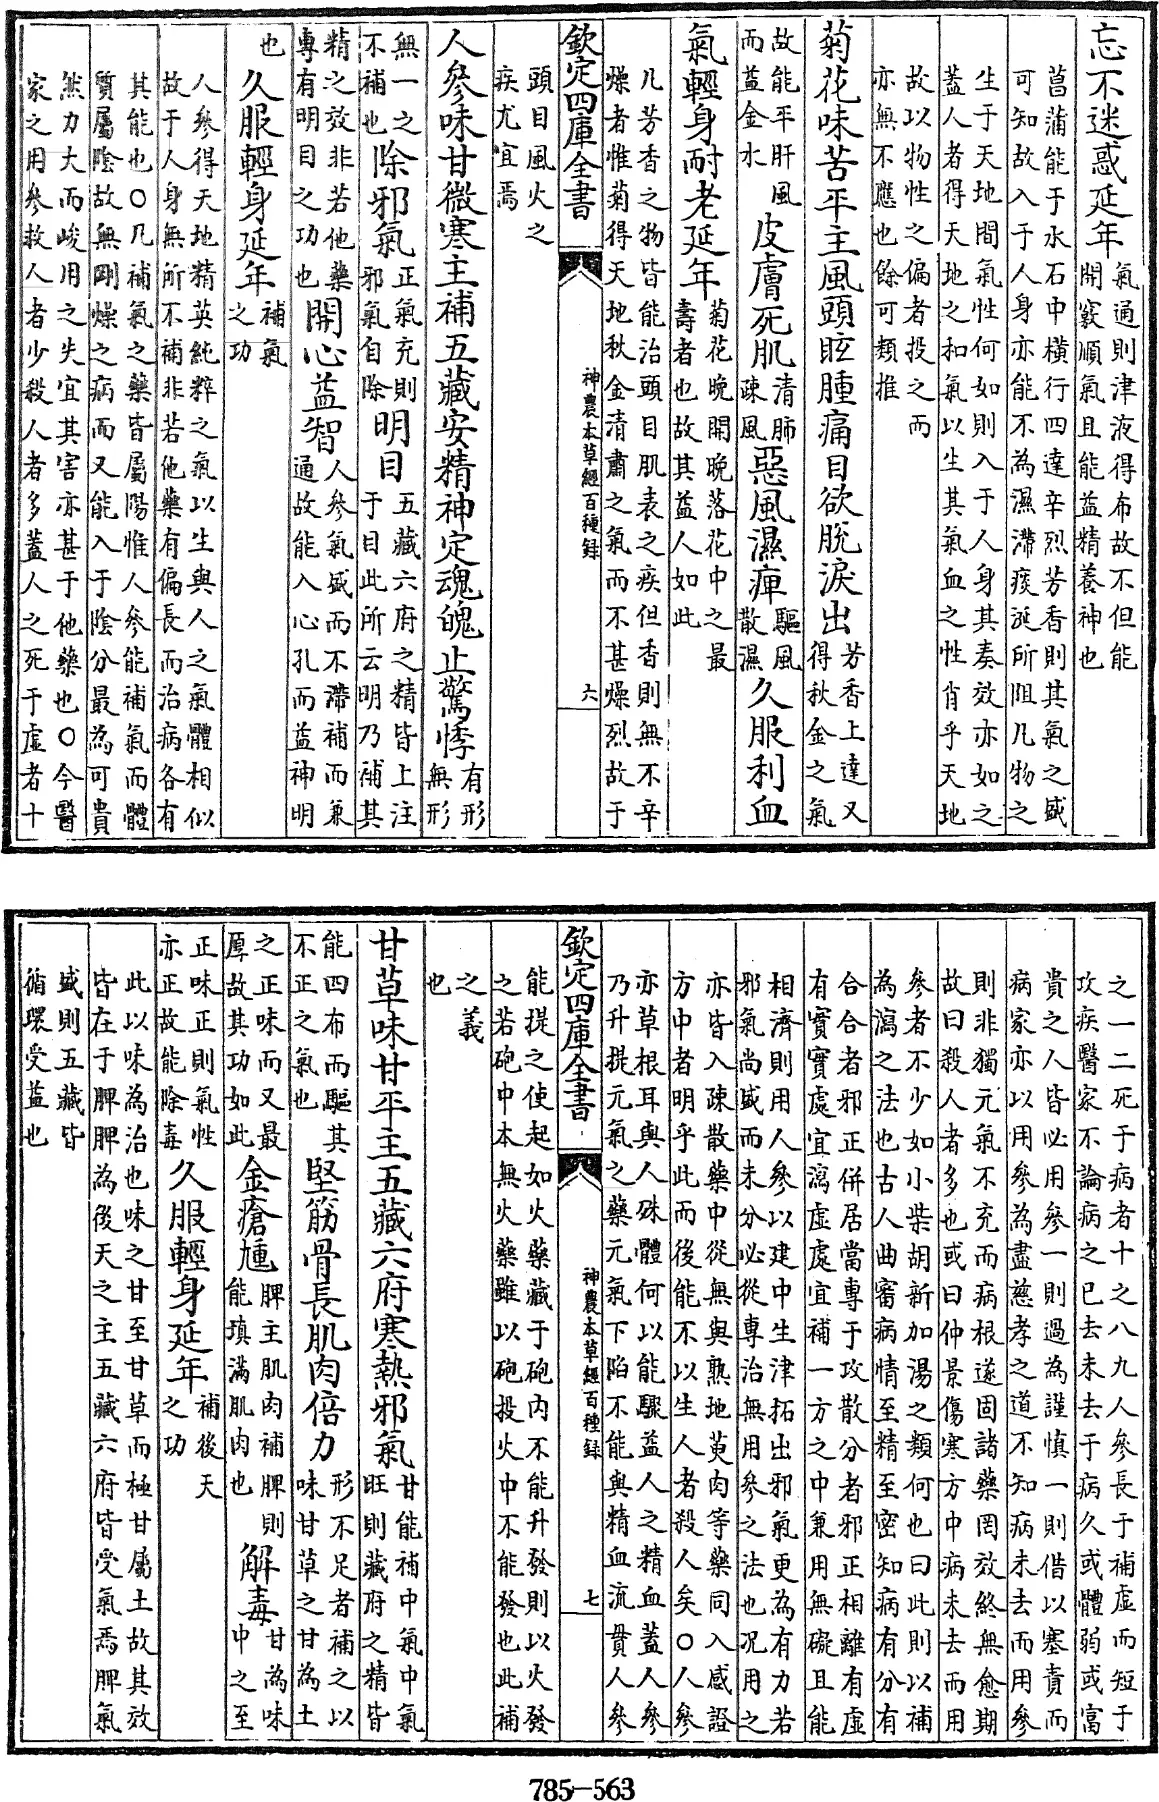 忘不迷惑延年氣通則津液得布故不但能
開竅順氣且能益精養神也
菖蒲能于水石中橫行四達辛烈芳香則其氣之盛
可知故入于人身亦能不為濕滯痰涎所阻凡物之
生于天地間氣性何如則入于人身其奏效亦如之
蓋人者得天地之和氣以生其氣血之性肖乎天地
故以物性之偏者投之而
亦無不應也餘可類推
菊花味苦平主風頭眩腫痛目欲脫淚出芳香上達又
得秋金之氣
故能平肝風
而益金水
皮膚死肌清肺
疎風
惡風濕痺驅風
散濕
久服利血
氣輕身耐老延年菊花晚開晚落花中之最
壽者也故其益人如此
凡芳香之物皆能治頭目肌表之疾但香則無不辛
燥者惟菊得天地秋金清肅之氣而不甚燥烈故于
欽定四庫全書
神農本草經百種錄
六
頭目風火之
疾尤宜焉
人參味甘微寒主補五藏安精神定魂魄止驚悸有形
無形
無一之
不補也
除邪氣正氣充則
邪氣自除
明目五藏六府之精皆上注
于目此所云明乃補其
精之效非若他藥
專有明目之功也
開心益智人參氣盛而不滯補而兼
通故能入心孔而益神明
也
久服輕身延年補氣
之功
人參得天地精英純粹之氣以生與人之氣體相似
故于人身無所不補非若他藥有偏長而治病各有
其能也○凡補氣之藥皆屬陽惟人參能補氣而體
質屬陰故無剛燥之病而又能入于陰分最為可貴
然力大而峻用之失宜其害亦甚于他藥也○今醫
家之用參救人者少殺人者多蓋人之死于虛者十
之一二死于病者十之八九人參長于補虛而短于
攻疾醫家不論病之已去未去于病久或體弱或富
貴之人皆必用參一則過為謹慎一則借以塞責而
病家亦以用參為盡慈孝之道不知病未去而用參
則非獨元氣不充而病根遂固諸藥罔效終無愈期
故曰殺人者多也或曰仲景傷寒方中病未去而用
參者不少如小柴胡新加湯之類何也曰此則以補
為瀉之法也古人曲審病情至精至密知病有分有
合合者邪正併居當專于攻散分者邪正相離有虛
有實實處宜瀉虛處宜補一方之中兼用無礙且能
相濟則用人參以建中生津拓出邪氣更為有力若
邪氣尚盛而未分必從專治無用參之法也況用之
亦皆入疎散藥中從無與熟地萸肉等藥同入感證
方中者明乎此而後能不以生人者殺人矣○人參
亦草根耳與人殊體何以能驟益人之精血蓋人參
乃升提元氣之藥元氣下陷不能與精血流貫人參
欽定四庫全書
神農本草經百種錄
七
能提之使起如火藥藏于砲內不能升發則以火發
之若砲中本無火藥雖以砲投火中不能發也此補
之義
也
甘草味甘平主五藏六府寒熱邪氣甘能補中氣中氣
旺則藏府之精皆
能四布而驅其
不正之氣也
堅筋骨長肌肉倍力形不足者補之以
味甘草之甘為土
之正味而又最
厚故其功如此
金瘡尰脾主肌肉補脾則
能填滿肌肉也
解毒甘為味
中之至
正味正則氣性
亦正故能除毒
久服輕身延年補後天
之功
此以味為治也味之甘至甘草而極甘屬土故其效
皆在于脾脾為後天之主五藏六府皆受氣焉脾氣
盛則五藏皆
循環受益也
785—563